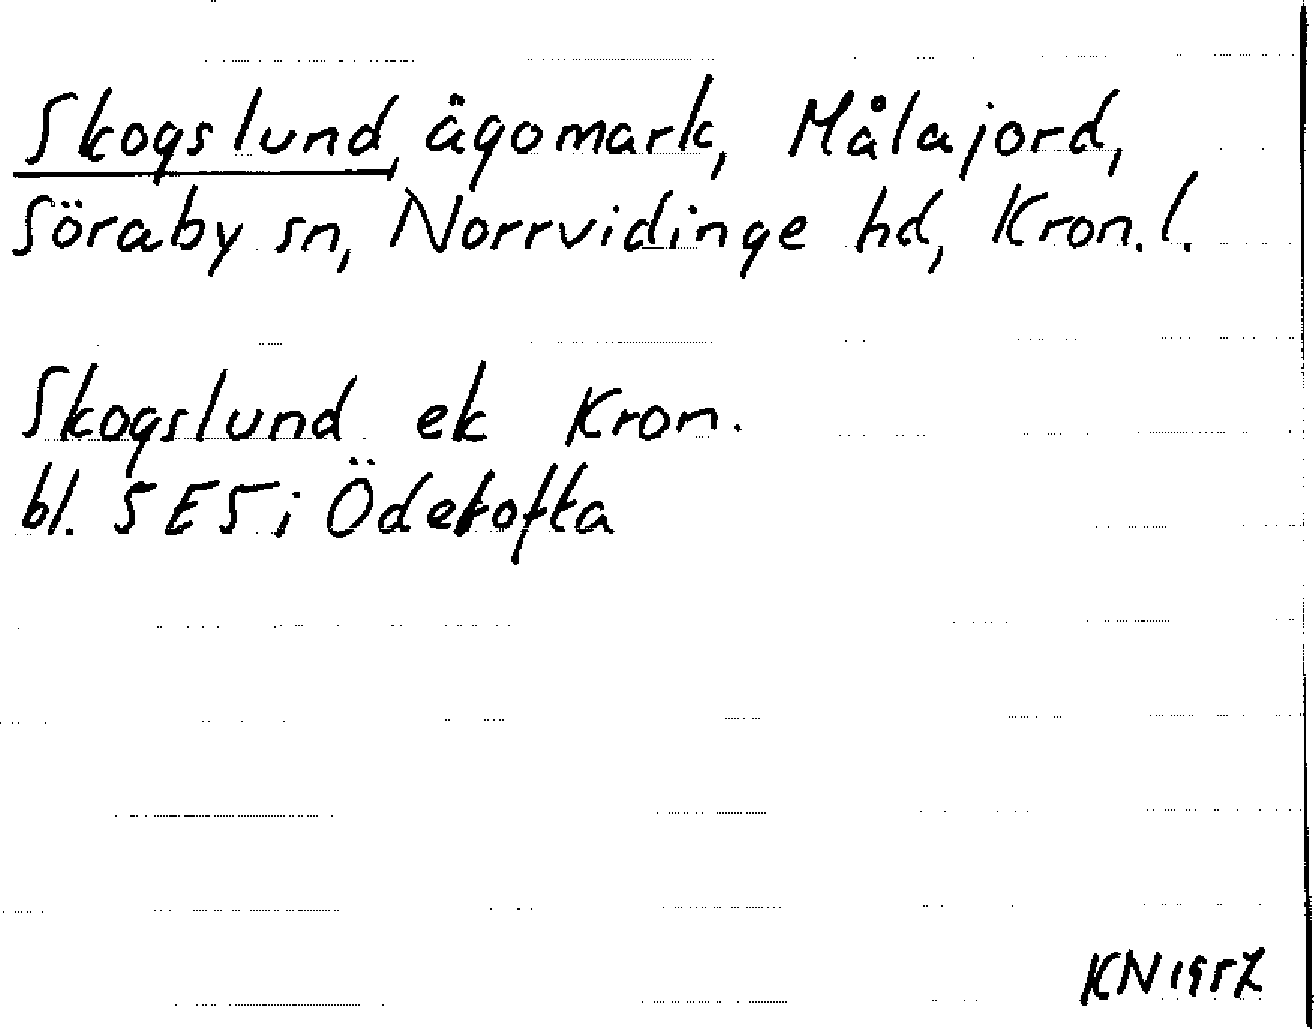 Skogslund, ägomark, Målajord,
Söraby sn, Norrvidinge hd, Kron. l.
Skogslund ek Kron.
bl. 5E5i Ödetofta
KN 1957